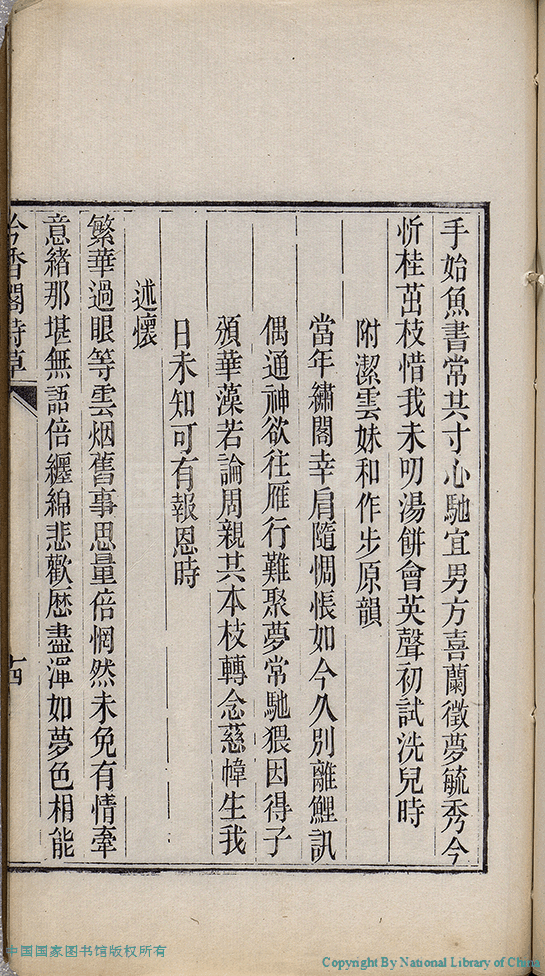 手始魚書常共寸心馳宜男方喜蘭徵夢毓秀今
忻桂茁枝惜我未叨湯餅會英聲初試洗兒時
附潔雲妹和作步原韻
當年繡閣幸肩隨惆悵如今久別離鯉訊
偶通神欲往雁行難聚夢常馳猥因得子
頒華藻若論周親共本枝轉念慈幃生我
日未知可有報恩時
述懷
繁華過眼等雲烟舊事思量倍惘然未免有情牽
意緒那堪無語倍纏綿悲歡歷盡渾如夢色相能
吟香閣詩草
十四
中国国家图书馆版权所有
Copyright By National Library of China